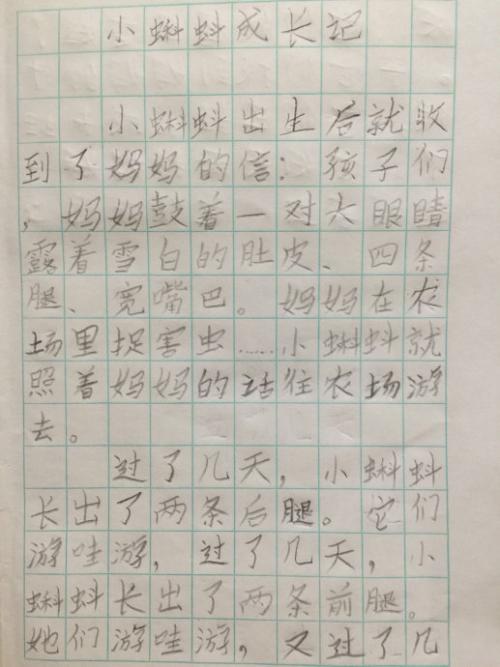 小蝌蚪成长记
小蝌蚪出生后就收
到了妈妈的信：孩子们
，妈妈鼓着一对大眼睛
露着雪白的肚皮、四条
腿、宽嘴巴。妈妈在农
场里捉害虫……小蝌蚪就
照着妈妈的话往农场游
去。
过了几天，小蝌蚪
长出了两条后腿。它们
游哇游，过了几天，小
蝌蚪长出了两条前腿。
她们游哇游，又过了几